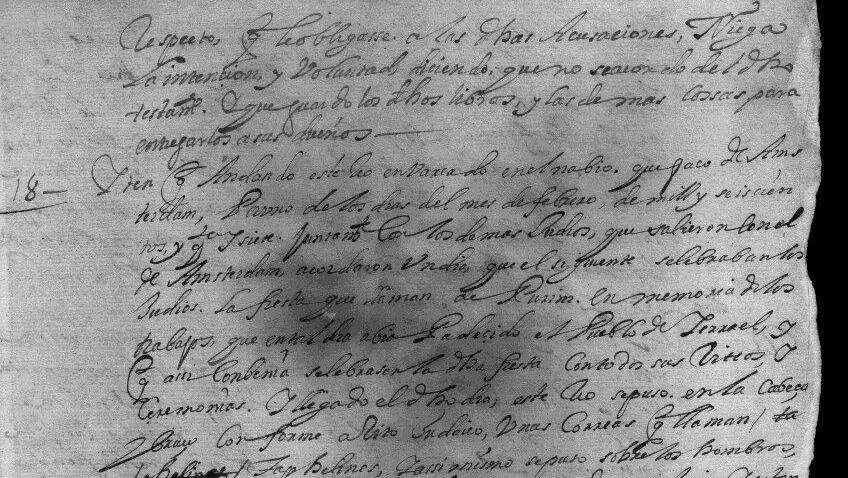 Respecto, q̃ leobligasse. a las dhas Acusaciones, Niega
La intencion, y Voluntad, diciendo, que no seacordo del dho
testamto. Y que guardo los dhos libros, y las demas cossas para
entregarlos a sus dueños
18— Yten q̃ Andando este Reo enVarcado en el nabio. que saco de Ams
terdam, Para o de los dias del mes de febrero, de mill y seiscien
tos, y qta Y siete. Juntamte Con los demas Judios, que salieron con el
de Amsterdam, acordaron Un dia, que el siguiente celebraban los
Judios. La fiesta que llaman de Purim. en memoria de los
trabajos, que en tal dia abia Padecido el Pueblo de Isrrael, y
q̃ assi Conbenia celebrasen la dha fiesta con todos sus Rittos, y
Ceremonias. Y llegado el dho dia, este Reo sepuso. en la Cabeça,
y braço conforme a Rito Judaico, Unas Correas q̃ llaman / ta
phelines / Taphelines, Y assimismo sepuso sobre los hombros,